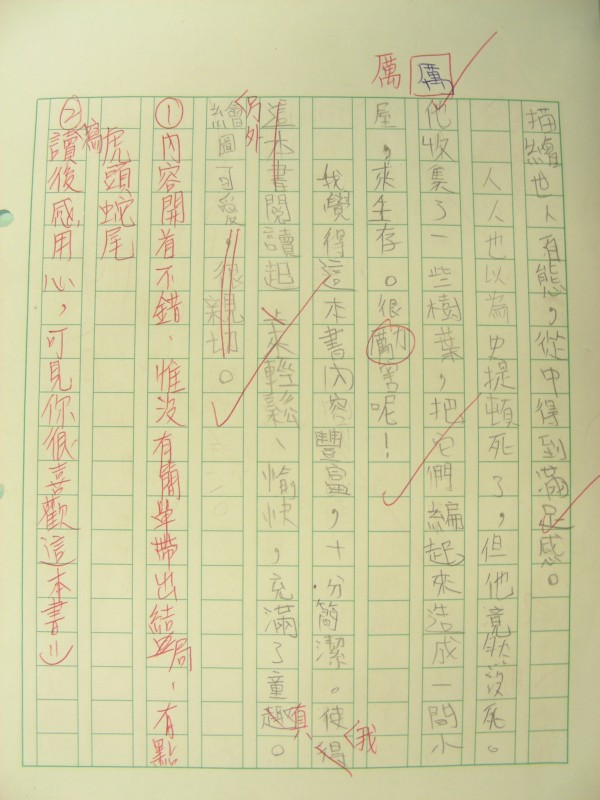 厲 厲
描繪也人有態，從中得到滿足感。
人人也以為史提頓死了，但他竟然沒死。
他收集了一些樹葉，把它們編起來造成一間小
屋，來生存。很勵害呢！
我覺得這本書內容豐富，十分簡潔。使
我
這本書閱讀起來輕鬆、愉快，充滿了童趣。
真
另外
繪圖可愛，很親切。
①內容開首不錯，惟沒有簡單帶出結局，有點
虎頭蛇尾
②讀後感用心，可見你很喜歡這本書